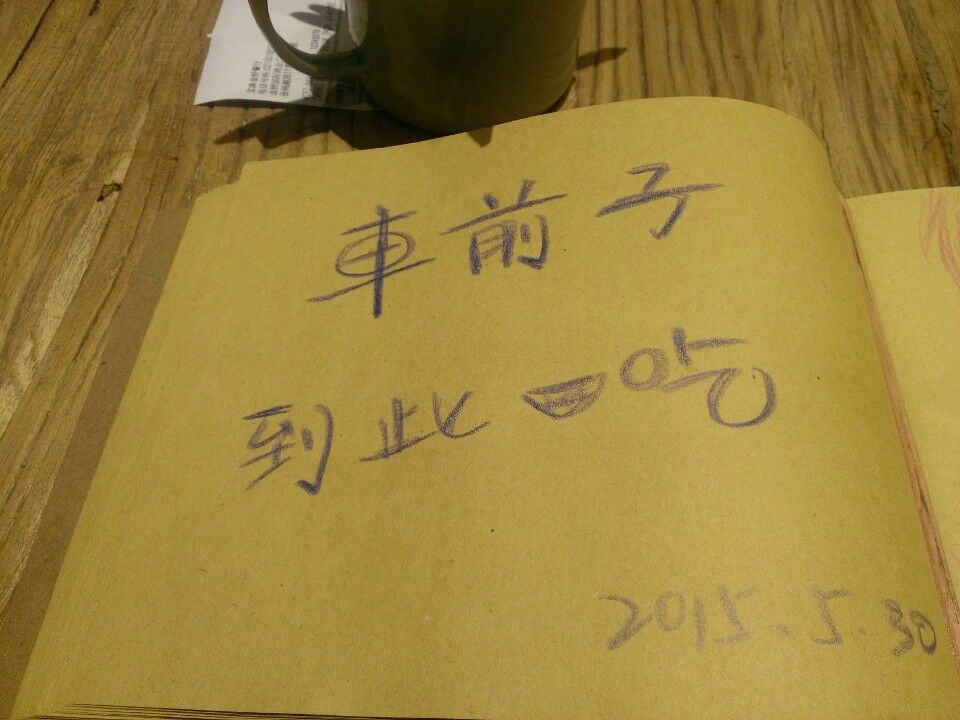 車前子
到此一吃
2015.5.30